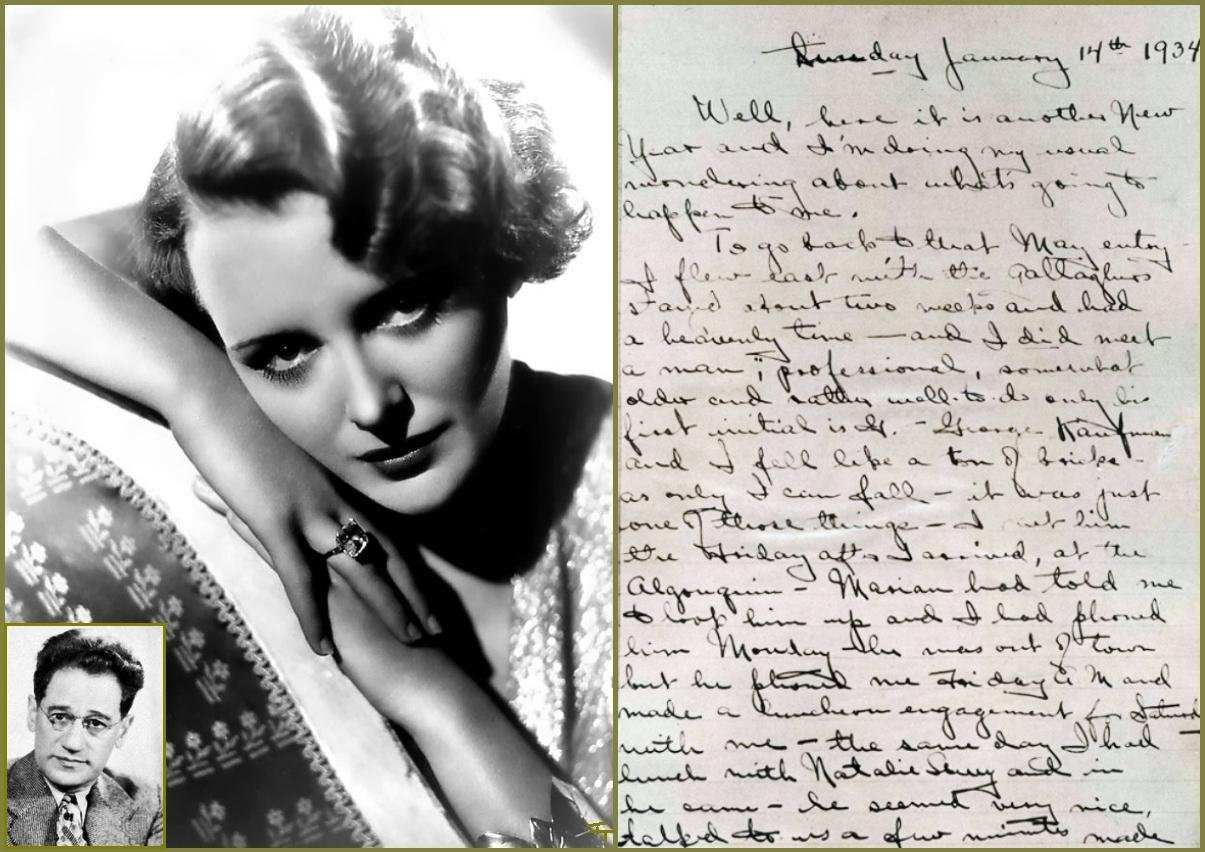 Tuesday January 14th 1934
Well, here it is another New
Year and I'm doing my usual
wondering about what's going to
happen to me.
To go back to that May entry
I flew east with the Gallaghers
stayed about two weeks and had
a heavenly time — and I did meet
a man; professional, somewhat
older and rather well-to-do only his
first initial is G. - George Kaufman
and I fell like a ton of bricks -
as only I can fall - it was just
one of those things - I met him
the Friday after I arrived, at the
Algonquin - Marian had told me
to look him up and I had phoned
him Monday - was out of town
but he phoned me Friday A M and
made a luncheon engagement for
with me - the same day I had
lunch with Natalie and in
he came - he seemed very nice,
talked to us a few minutes made